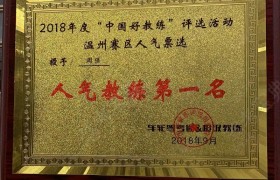 2018年度“中国好教练”评选活动
温州赛区人气票选
授予:
人气教练第一名
2018年9月